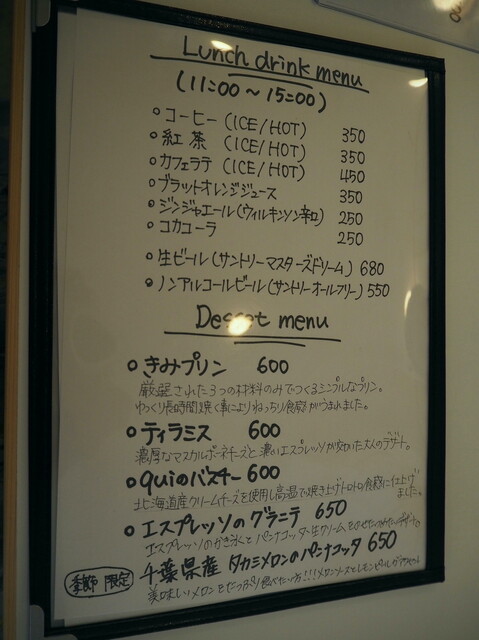 Lunch drink menu
(11:00～15:00)
○コーヒー(ICE/HOT) 350
○紅茶 (ICE/HOT) 350
○カフェラテ (ICE/HOT) 450
○ブラッドオレンジジュース 350
○ジンジャエール(ウィルキンソン辛口) 250
○コカコーラ 250
○生ビール(サントリーマスターズドリーム) 680
○ノンアルコールビール(サントリーオールフリー) 550
Dessert menu
○きみプリン 600
厳選された3つの材料のみでつくるシンプルなプリン。
ゆっくり長時間焼く事によりねっちり食感がうまれました。
○ティラミス 600
濃厚なマスカルポーネチーズと濃いエスプレッソが効いた大人のデザート。
○quiのバスチー 600
北海道産クリームチーズを使用し高温で焼き上げトロトロ食感に仕上げ
ました。
○エスプレッソのグラニテ 650
エスプレッソのかき氷とパンナコッタ、生クリームをのせた
季節限定
千葉県産 タカミメロンのパンナコッタ 650
美味しいメロンをたっぷり食べたい方!!!メロンソースとレモンピールが